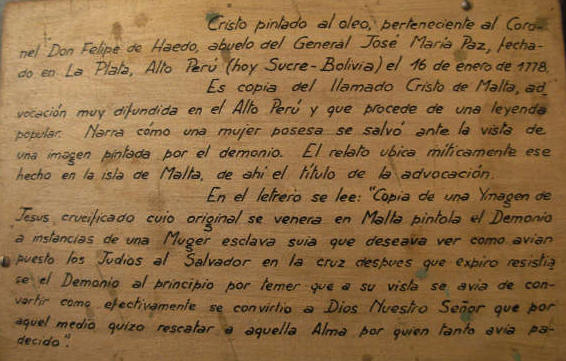 Cristo pintado al oleo, perteneciente al Coro-
nel Don Felipe de Haedo, abuelo del General José María Paz, fecha-
do en La Plata, Alto Perú (hoy Sucre-Bolivia) el 16 de enero de 1778.
Es copia del llamado Cristo de Malta, ad
vocación muy difundida en el Alto Perú y que procede de una leyenda
popular. Narra cómo una mujer posesa se salvó ante la vista de
una imagen pintada por el demonio. El relato ubica míticamente ese
hecho en la isla de Malta, de ahí el título de la advocación.
En el letrero se lee: "Copia de una Ymagen de
Jesus crucificado cuio original se venera en Malta pintola el Demonio
a instancias de una Muger esclava suia que deseava ver como avian
puesto los Judios al Salvador en la cruz despues que expiro resistia
se el Demonio al principio por temer que a su vista se avia de con-
vertir como efectivamente se convirtio a Dios Nuestro Señor que por
aquel medio quizo rescatar a aquella Alma por quien tanto avia pa-
decido".